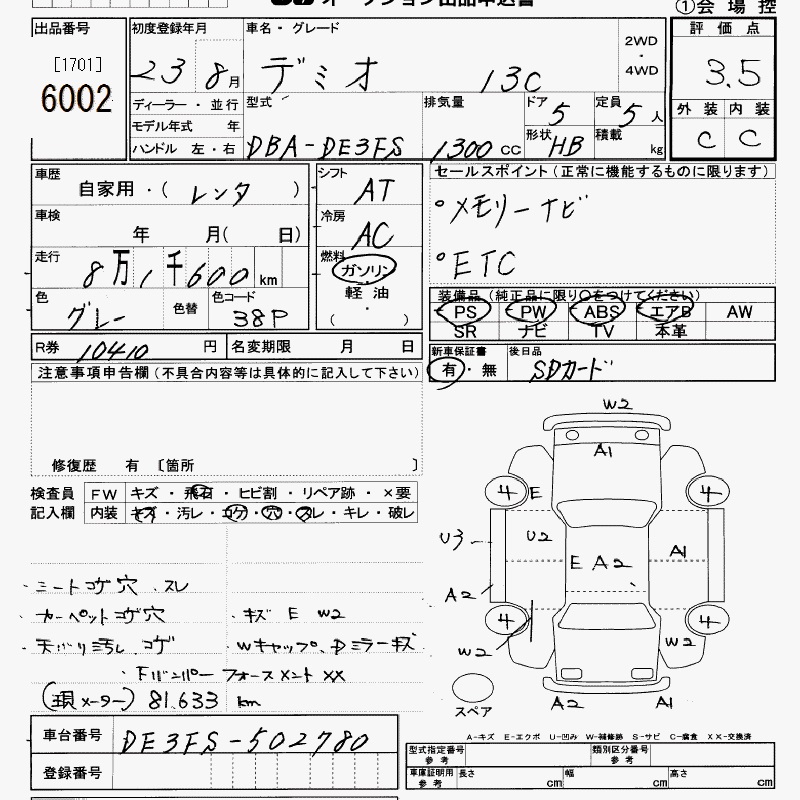 オークション出品申込書
①会場控
出品番号
[1701]
6002
初度登録年月 23 8月
車名・グレード デミオ 13C
2WD・4WD
評価点 3.5
外装 C 内装 C
ディーラー・並行
モデル年式 年
ハンドル 左・右
型式 DBA-DE3FS
排気量 1300 CC
ドア 5
形状 HB
定員 5 人
積載 kg
車歴 自家用・(レンタ)
車検 年 月( 日)
走行 8万1千600km
色 グレー 色替
色コード 38P
シフト AT
冷房 AC
燃料 ガソリン
軽油
( )
セールスポイント(正常に機能するものに限ります)
°メモリーナビ
°ETC
装備品(純正品に限り○をつけてください)
PS PW ABS エアB AW
SR ナビ TV 本革
R券 10410 円
名変期限 月 日
新車保証書 有・無
後日品 SDカード
注意事項申告欄(不具合内容等は具体的に記入して下さい)
修復歴 有〔箇所 〕
検査員記入欄
FW キズ・飛石・ヒビ割・リペア跡・×要
内装 キズ・汚レ・コゲ・穴・スレ・キレ・破レ
・シートコゲ穴 .スレ
・カーペットコゲ穴
・キズ E W2
・天バリ汚レ.コゲ
・Wキャップ、Dミラーキズ
・Fバンパーフォースメント XX
(現メーター) 81.633 km
W2
A1
4 E 4
U3 U2
E A2
A1
A2
4 4
W2 W2
スペア
A2 A1
A-キズ E-エクボ U-凹み W-補修跡 S-サビ C-腐食 XX-交換済
車台番号 DE3FS-502780
登録番号
型式指定番号 参考
類別区分番号 参考
車庫証明用 参考
長さ cm 幅 cm 高さ cm